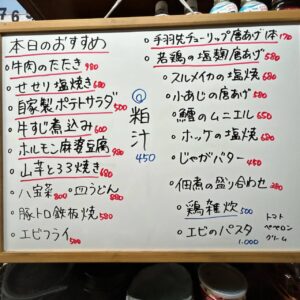 本日のおすすめ
・牛肉のたたき 980
・せせり塩焼き 680
・自家製ポテトサラダ 500
・牛すじ煮込み 600
・ホルモン麻婆豆腐 980
・山芋とろろ焼き 680
・八宝菜 800 ・四川うどん 880
・豚トロ鉄板焼 580
・エビフライ 500
◎粕汁 450
・手羽先チューリップ唐あげ 1本 170
・若鶏の塩麹唐あげ 580
・スルメイカの塩焼 680
・小あじの唐あげ 580
・鱧のムニエル 650
・ホッケの塩焼 680
・じゃがバター 450
・佃煮の盛り合わせ 380
・鶏雑炊 500
・エビのパスタ 1.000
トマト
ペペロン
クリーム